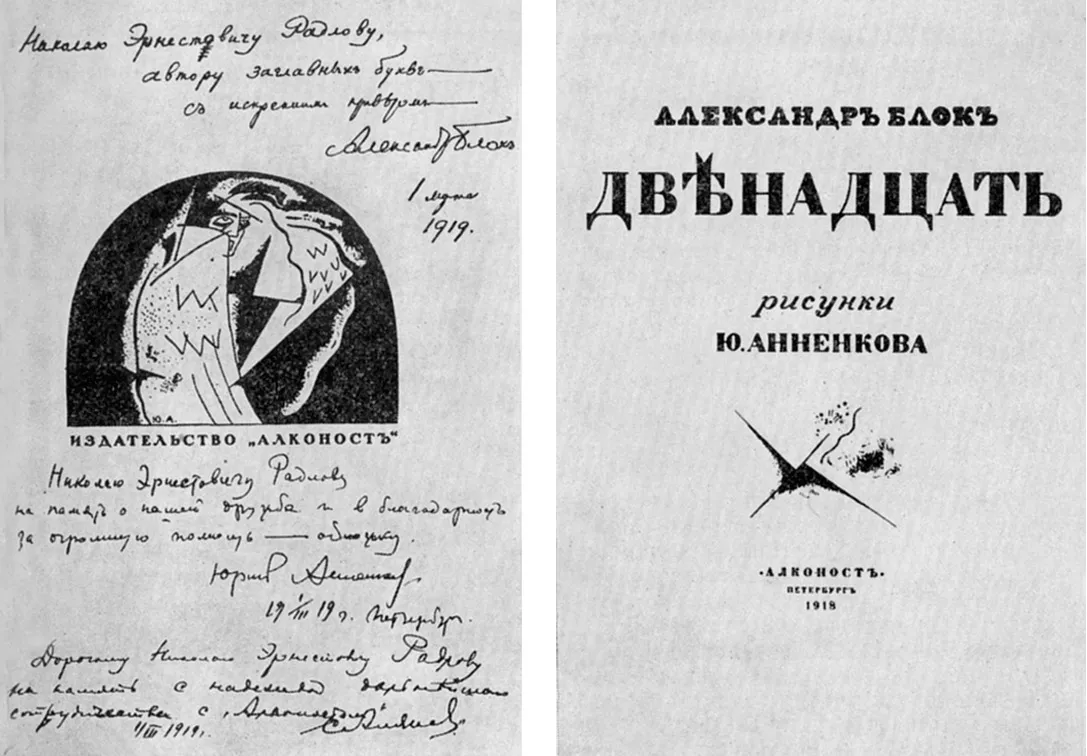 Николаю Эрнестовичу Радлову,
автору заглавныхъ буквъ
съ искреннимъ привѣтомъ
Александръ Блокъ
1 марта
1919.
Ю.А.
ИЗДАТЕЛЬСТВО „АЛКОНОСТЪ“
Николаю Эрнестовичу Радлову
на память о нашей дружбе и в благодарность
за огромную помощь
Юрий Анненков
19 1/III 19 г. Петербург.
Дорогому Николаю Эрнестовичу Радлову
на память с надеждой дальнейшего
сотрудничества с „Алконостом“
С. Алянский
1/III 1919 г.
АЛЕКСАНДРЪ БЛОКЪ
ДВѢНАДЦАТЬ
рисунки
Ю. АННЕНКОВА
·АЛКОНОСТЪ·
ПЕТЕРБУРГЪ
1918